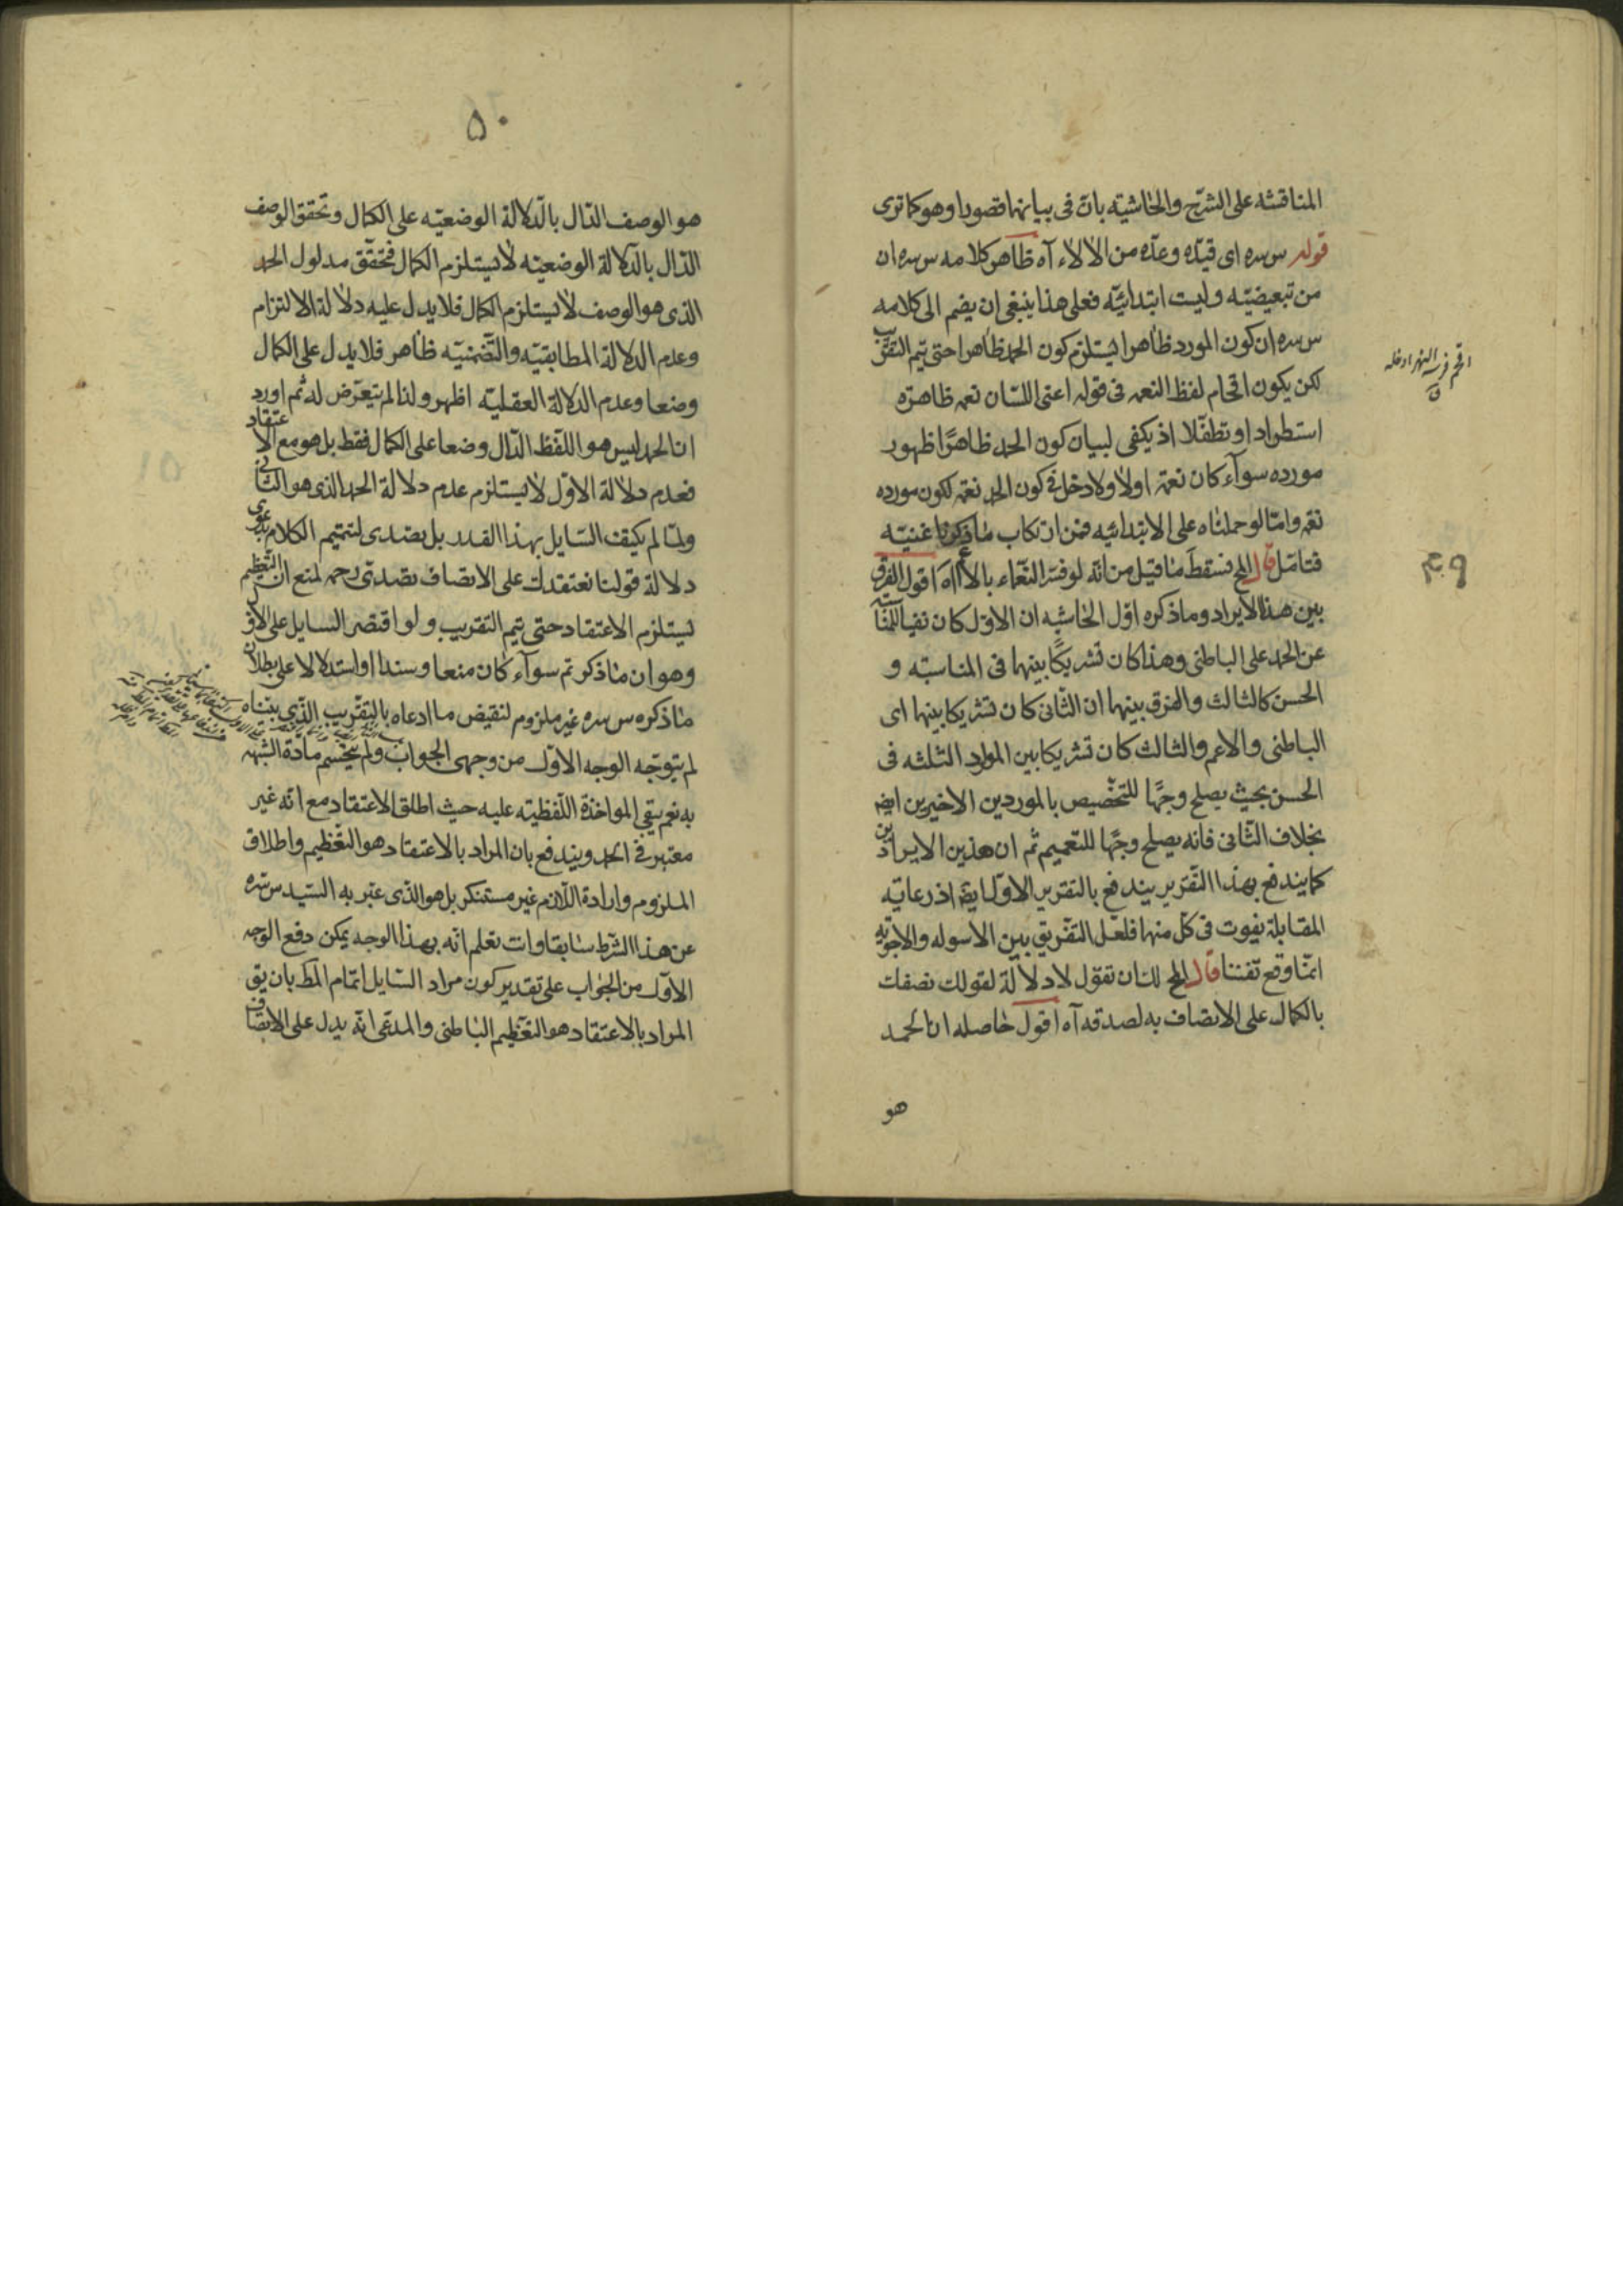 المناقشه على الشرح والحاشيته بان فى بيانها قصورا وهو كما ترى
قوله س سره اى قيدّه وعدّه من الالاء آه ظاهر كلامه س سره ان
من تبعيضيّه وليست ابتدائيّه فعلى هذا ينبغى ان يضم الى كلامه
س سره ان كون المورد ظاهرا يستلزم كون الحمد ظاهرا حتى يتم التقريب
لكن يكون اقحام لفظ النعمه فى قوله اعنى اللسان نعمه ظاهرة
استطرادا وتطفّلا اذ يكفى لبيان كون الحمد ظاهرًا ظهور
مورده سوآء كان نعمة اولا ولا دخل فى كون الحمد نعمه لكون مورده
نعمه وامّا لو حملناه على الابتدائيه فمن ارتكاب ما ذكرنا غنيته
فتامّل قال المح فسقط ما قيل من انّه لو فسّر النعّماء بالا آه اقول الفرق
بين هذا الايراد وما ذكره اوّل الحاشيه ان الاوّل كان نفيا للمناسبته
عن الحمد على الباطنى وهذا كان تشريكًا بينهما فى المناسبته و
الحسن كالثالث والفرق بينهما ان الثّانى كان تشريكا بينها اى
الباطنى والاعم والثالث كان تشريكا بين الموارد الثلثه فى
الحسن بحيث يصلح وجهًا للتخصيص بالموردين الاخيرين ايضه
بخلاف الثّانى فانّه يصلح وجهًا للتعميم ثم ان هذين الايرادين
كما يندفع بهذا التقرير يندفع بالتقرير الاوّل ايضه اذ رعايته
المقابلة يفوت فى كلّ منها فلعل التفريق بين الاسوله والاجوبه
انمّا وقع تفننا قال المح لك ان تقول لا دلالة لقولك نصفك
بالكمال على الاتصاف به لصدقه آه اقول حاصله ان الحمد
هو
اقحم فرسه النهر ادخله
ق
٥٠
هو الوصف الدّال بالدّلالة الوضعيّه على الكمال وتحقق الوصف
الدّال بالدّلالة الوضعيّه لا يستلزم الكمال فتحقّق مدلول الحمد
الذى هو الوصف لا يستلزم الكمال فلا يدل عليه دلالة الالتزام
وعدم الدلالة المطابقيّه والتضمنيّه ظاهر فلا يدل على الكمال
وضعا وعدم الدلالة العقليّه اظهر ولذا لم يتعرّض له ثم اورد
ان الحمد ليس هو اللفظ الدّال وضعا على الكمال فقط بل هو مع الاعتقاد
فعدم دلالة الاوّل لا يستلزم عدم دلالة الحمد الذى هو الثانى
ولمّا لم يكيف السّايل بهذا القدر بل تصدى لتتميم الكلام بدعوى
دلالة قولنا نعتقدك على الاتصاف تصدى رحمه لمنع ان التعظيم
يستلزم الاعتقاد حتى يتم التقريب ولو اقتصر السايل على الاوّل
وهو ان ما ذكر تم سوآء كان منعا وسندا او استدلالا على بطلان
ما ذكره س سره غير ملزوم لنقيض ما ادعاه بالتقريب الذّى بيّناه
لم يتوجّه الوجه الاوّل من وجهى الجواب ولم ينحسم مادة الشبهه
به نعم يبقى المواخذة اللّفظيته عليه حيث اطلق الاعتقاد مع انّه غير
معتبر فى الحمد ويندفع بان المراد بالاعتقاد هو التّعظيم واطلاق
الملزوم وارادة اللّازم غير مستنكر بل هو الذّى عبّر به السّيد س سره
عن هذا الشّرط سابقا وانت تعلم انّه بهذا الوجه يمكن دفع الوجه
الاوّل من الجواب على تقدير كون مراد السّايل اتمام المط بان يق
المراد بالاعتقاد هو التعّظيم الباطنى والمدعّى انّه يدل على الاتصّاف